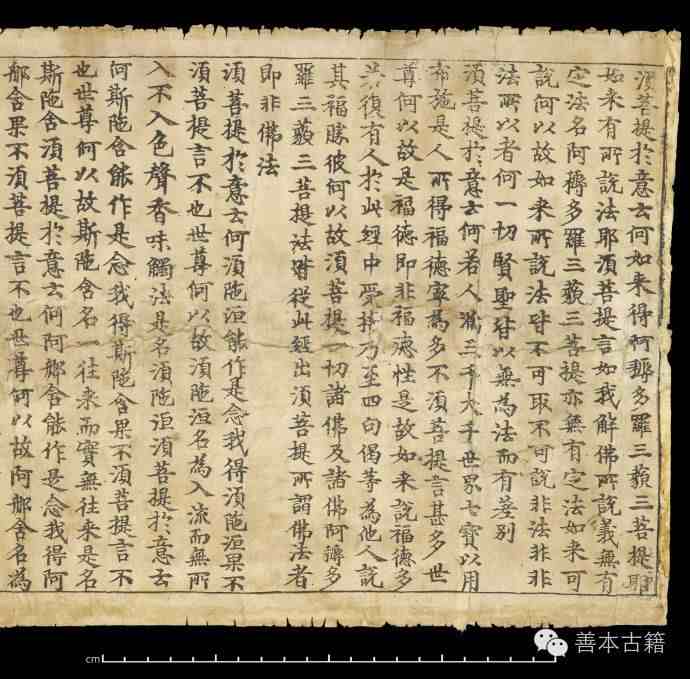 須菩提於意云何如来得阿耨多羅三藐三菩提耶
如来有所說法耶須菩提言如我解佛所說義無有
定法名阿耨多羅三藐三菩提亦無有定法如来可
說何以故如来所說法皆不可取不可說非法非非
法所以者何一切賢聖皆以無為法而有差別
須菩提於意云何若人滿三千大千世界七寶以用
布施是人所得福德寧為多不須菩提言甚多世
尊何以故是福德即非福德性是故如来說福德多
若復有人於此經中受持乃至四句偈等為他人說
其福勝彼何以故須菩提一切諸佛及諸佛阿耨多
羅三藐三菩提法皆從此經出須菩提所謂佛法者
即非佛法
須菩提於意云何須陁洹能作是念我得須陁洹果不
須菩提言不也世尊何以故須陁洹名為入流而無所
入不入色聲香味觸法是名須陁洹須菩提於意云
何斯陁含能作是念我得斯陁含果不須菩提言不
也世尊何以故斯陁含名一往来而實無往来是名
斯陁含須菩提於意云何阿那含能作是念我得阿
那含果不須菩提言不也世尊何以故阿那含名為
cm
善本古籍